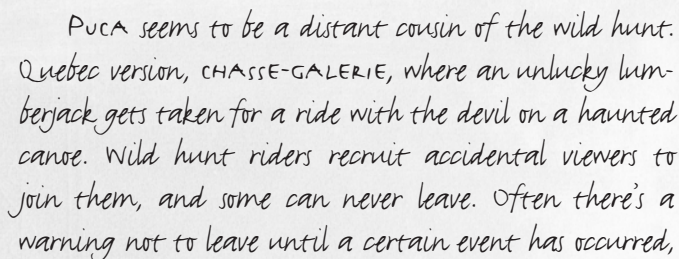 PUCA seems to be a distant cousin of the wild hunt.
Quebec version, CHASSE-GALERIE, where an unlucky lum-
berjack gets taken for a ride with the devil on a haunted
canoe. Wild hunt riders recruit accidental viewers to
join them, and some can never leave. Often there's a
warning not to leave until a certain event has occurred,